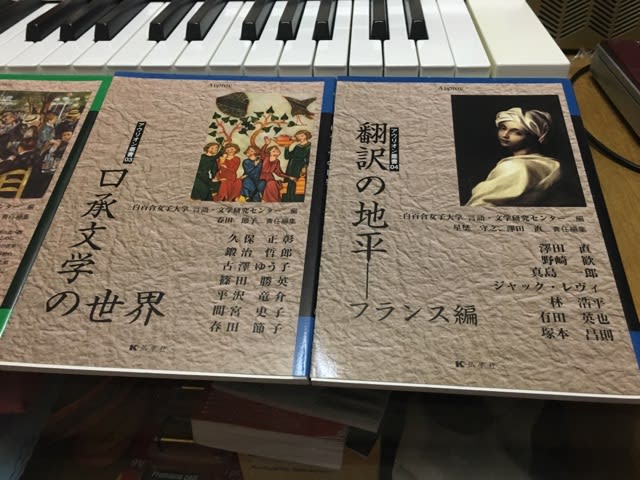 アウリオン叢書03
口承文学の世界
白百合女子大学 言語・文学研究センター 編
春田 節子 責任編集
久保 正彰
鍛治 哲郎
古澤 ゆう子
篠田 勝英
平沢 竜介
間宮 史子
春田 節子
弘学社
アウリオン叢書04
翻訳の地平
フランス編
白百合女子大学 言語・文学研究センター 編
星埜 守之、澤田 直 責任編集
澤田 直
野崎 歓
真島 一郎
ジャック・レヴィ
林 浩平
有田 英也
塚本 昌則
弘学社